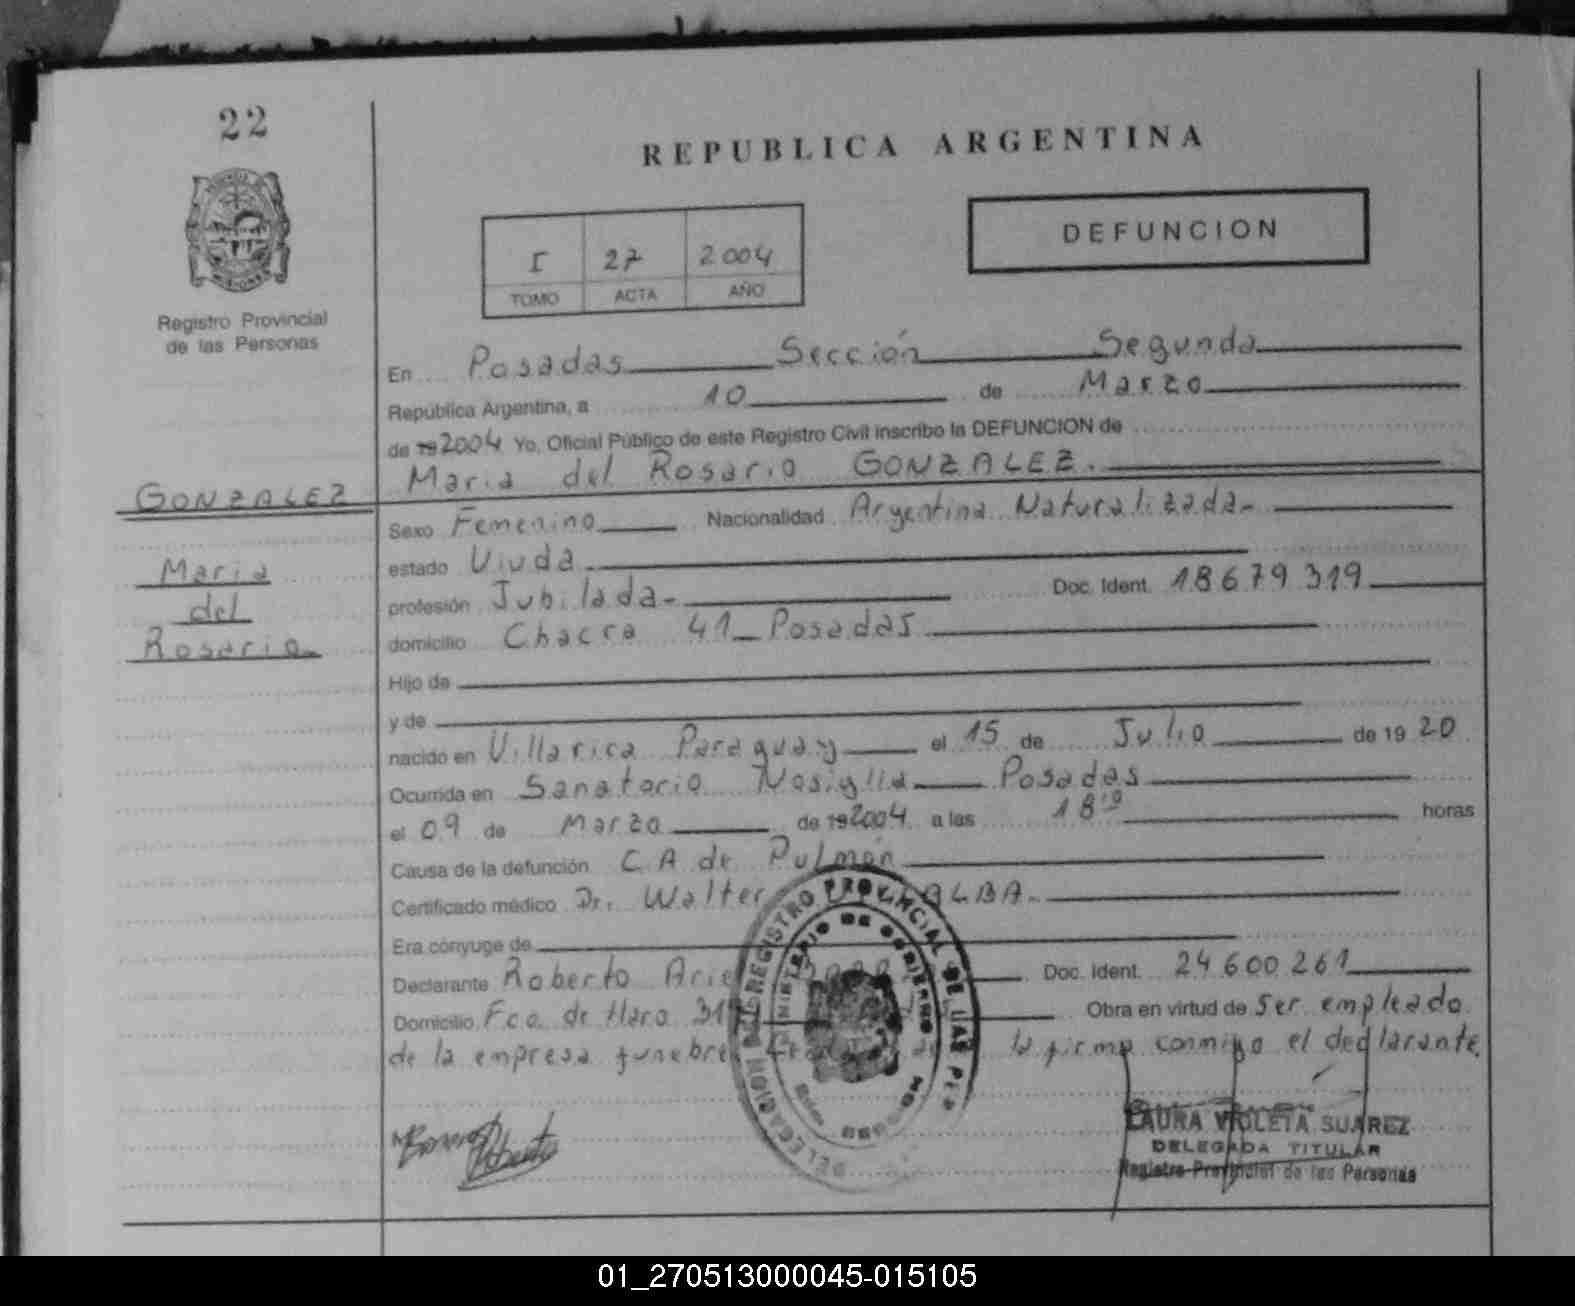 22
REPUBLICA ARGENTINA
DEFUNCION
I 27 2004
TOMO ACTA AÑO
Registro Provincial
de las Personas
En Posadas Sección Segunda
República Argentina, a 10 de Marzo
de 192004 Yo, Oficial Público de este Registro Civil inscribo la DEFUNCION de
Maria del Rosario GONZALEZ.
GONZALEZ
Maria
del
Rosario
Sexo Femenino Nacionalidad Argentina Naturalizada
estado Viuda
profesión Jubilada Doc. Ident. 18679319
domicilio Chacra 41 Posadas
Hijo de
y de
nacido en Villarica Paraguay el 15 de Julio de 1920
Ocurrida en Sanatorio Nosiglia Posadas
el 09 de Marzo de 192004 a las 18 horas
Causa de la defunción C A de Pulmón
Certificado médico Dr. Walter
Era cónyuge de
Declarante Roberto Doc. Ident. 24.600.261
Domicilio Fco. de Haro Obra en virtud de ser empleado
de la empresa funebre la firma conmigo el declarante
DELEGACION REGISTRO PROVINCIAL DE LAS PER
MINISTERIO DE GOBIERNO
PROVINCIA DE MISIONES
LAURA VIOLETA SUAREZ
DELEGADA TITULAR
Registro Provincial de las Personas
01_270513000045-015105